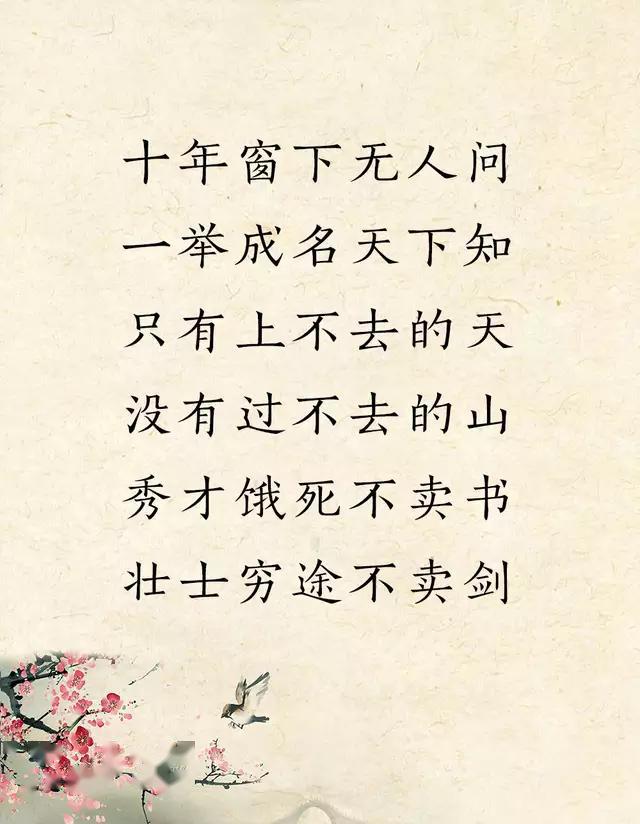 十年窗下无人问
一举成名天下知
只有上不去的天
没有过不去的山
秀才饿死不卖书
壮士穷途不卖剑